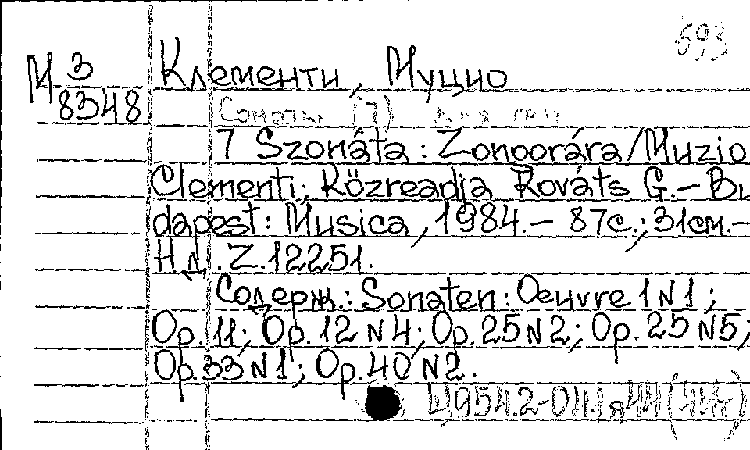 593
М 3
8348
Клементи, Муцио
Сонаты (7) для
7 Szonáta: Zongorára/Muzio
Clementi; Közreadja Rováts G.– Bu
dapest: Musica, 1984.– 87с.; 31см.–
Н.Д. Z.12251.
Содерж.: Sonaten: Oeuvre 1 N1;
Op.11; Op.12 N4; Op.25 N2; Op.25 N5;
Op.33 N1; Op.40 N2.
Ц954.2-04.1я44